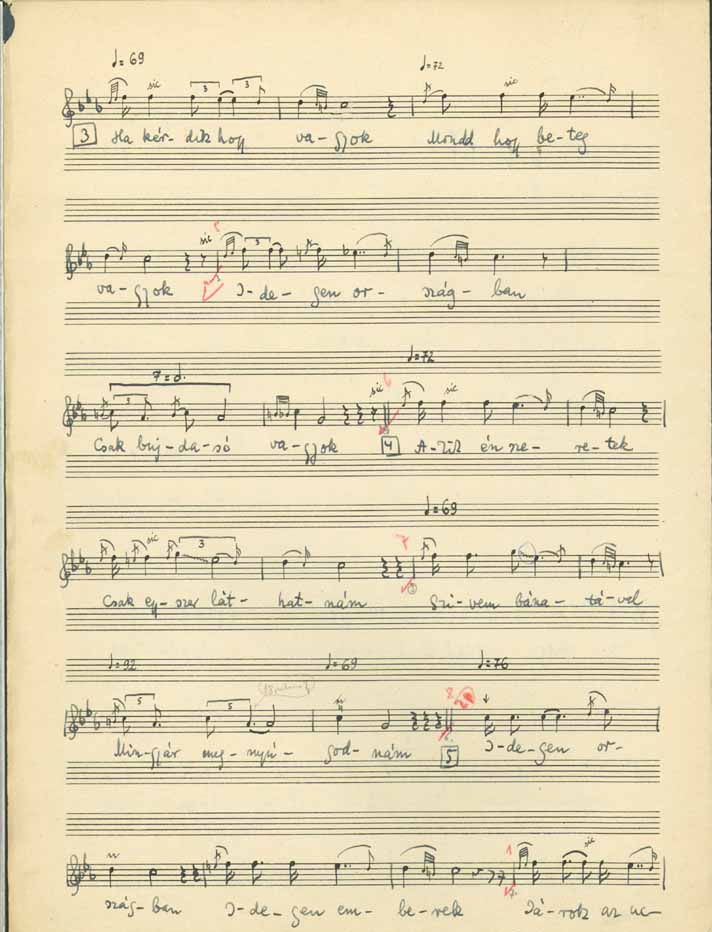 ♩= 69 sic 3 3 ♩=72 sic
3 Ha kér- dik hogy va- gyok Mondd hogy be- teg
sic 5 3
va- gyok I- de- gen or- szág- ban
7=♩. 3 sic 6 ♩=72 sic
Csak buj- da- só va- gyok 4 A- kit én sze- re- tek
♩=69
sic 3 7
Csak egy- szer lát- hat- nám Szi- vem bána- tá- vel
♩=92 ♩=69 ♩=76
5 5 8
Min- gyár meg- nyú- god- nám 5 I- de- gen or-
1 sic
szág- ban I- de- gen em- be- rek Já- rok az uc-